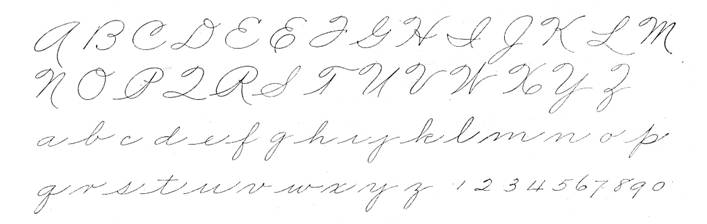 A B C D E E F G H I J K L M
N O P Q R S T U V W X Y Z
a b c d e f g h i j k l m n o p
q r s t u v w x y z 1 2 3 4 5 6 7 8 9 0